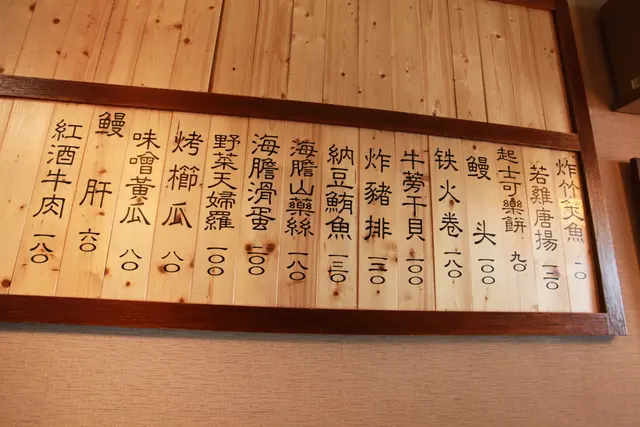 炸竹筴魚
若雞唐揚 一二〇
起士可樂餅 九〇
鰻頭 一〇〇
铁火卷 一八〇
牛蒡干貝 一〇〇
炸豬排 一三〇
納豆鮪魚 一三〇
海膽山藥絲 一八〇
海膽滑蛋 二〇〇
野菜天婦羅 一〇〇
烤櫛瓜 八〇
味噌黃瓜 八〇
鰻肝 六〇
紅酒牛肉 一八〇